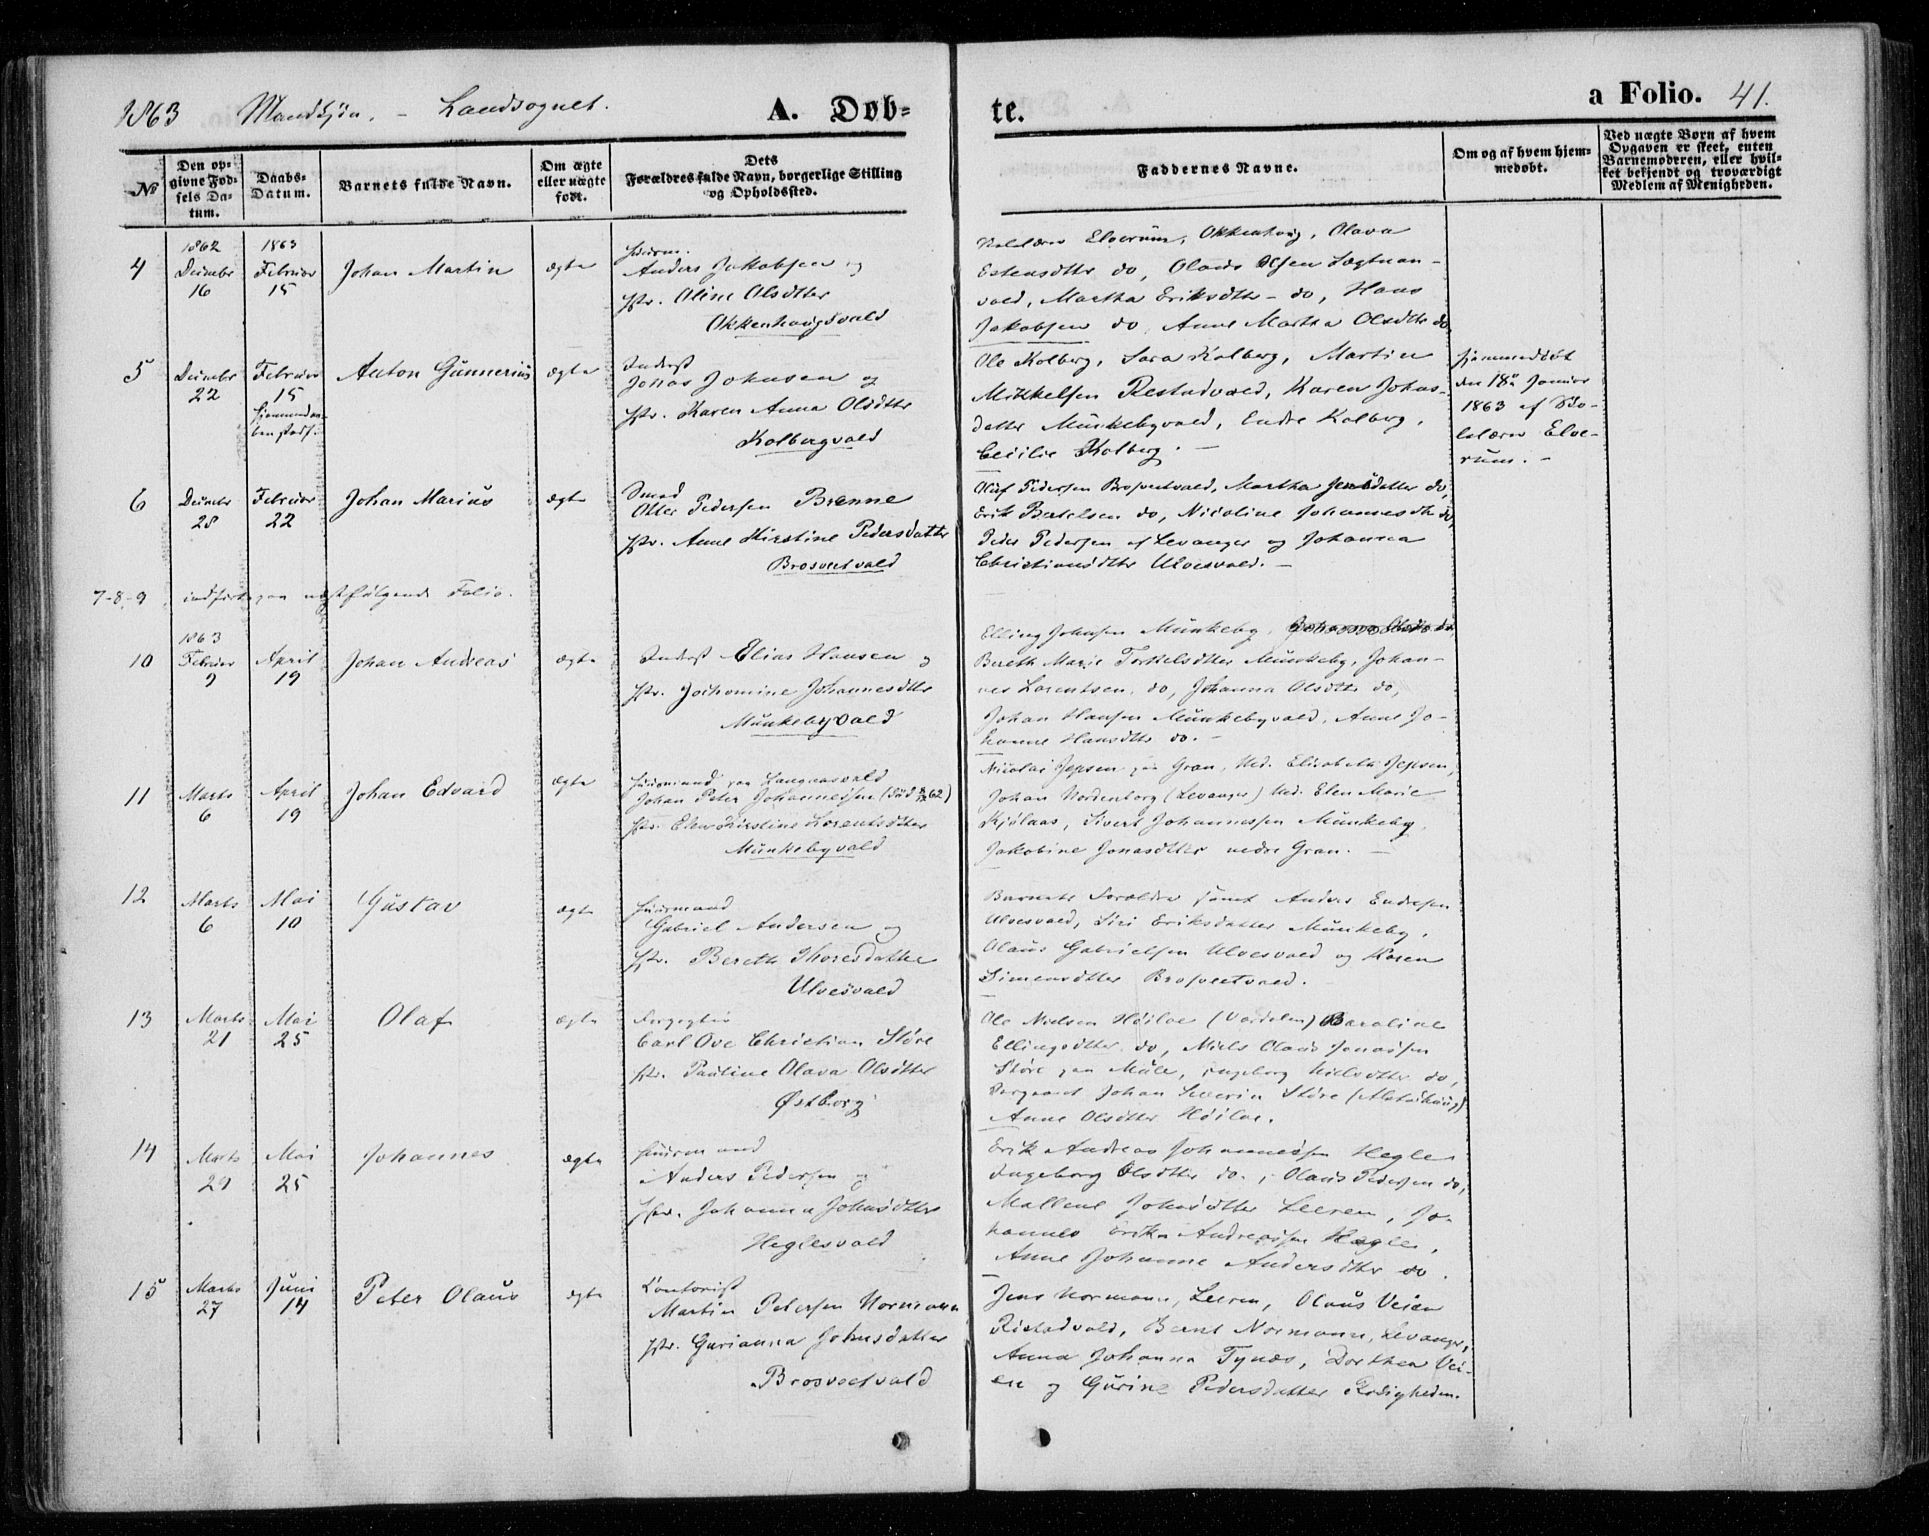 1863 Mandkjøn. - Landsognet. A. Døb-
te. a Folio. 41.
No
Den opgivne Fødsels Datum.
Daabs-Datum.
Barnets fulde Navn.
Om ægte eller uægte født.
Dets Forældres fulde Navn, borgerlige Stilling og Opholdssted.
Faddernes Navne.
Om og af hvem hjemmedøbt.
Ved uægte Børn af hvem Opgaven er skeet, enten Barnemoderen, eller hvilket bekjendt og troværdigt Medlem af Menigheden.
4 1862 Decmbr 16 1863 Februar 15 Johan Martin ægte
Huusm.
Anders Jakobsen og
Hstr. Oline Olsdtter
Okkenhougsvald
Elverum, Okkenhoug, Olava
Estensdtter do, Olaus Olsen
vald, Martha Eriksdtter - do, Hans
Jakobsen do, Anne Martha Olsdtter do
5 Decmbr 22 Februar 15 Anton Gunnerius ægte
Inderst
Jonas Johnsen og
Hstr. Karen Anna Olsdtter
Kolbergvald
Ole Kolberg, Sara Kolberg, Martin
Mikkelsen Restadvald, Karen Johns-
datter Munkebyvald, Endre Kolberg,
Cecilie Kolberg. -
hjemmedøbt
den 18de Januar
1863 af Sko-
lelærer Elve-
rum. -
6 Decmbr 28 Februar 22 Johan Marius ægte
Smed
Otter Pedersen Brenne
Hstr. Anne Kirstine Pedersdatter
Brosveetvald
Oluf Pedersen Brosveetvald, Martha Jensdatter do,
Erik Bertelsen do, Nicoline Johannesdtr do,
Peder Pedersen af Levanger og Johanna
Christiansdtter Ulvesvald. -
7-8-9 indført paa næstfølgende Folio.
10 1863 Februar 9 April 19 Johan Andreas ægte
Inderst Elias Hansen og
Hstr. Jochomine Johannesdtter
Munkebyvald
Elling Johnsen Munkeby,
Bereth Marie Torkelsdtter Munkeby, Johan-
nes Lorentsen do, Johanna Olsdtter do,
Johan Hansen Munkebyvald, Anne Jo-
hanne Hansdtter do. -
11 Marts 6 April 19 Johan Edvard ægte
Huusmand paa Langaasvald
Johan Peter Johannessen (død 62)
Hstr. Elen Kirstine Lorentsdtter
Munkebyvald
Nicolai Jepsen paa Gran, Md. Elisabeth Jepsen,
Johan Nordenborg (Levanger) Md. Elen Marie
Kjølaas, Sivert Johannessen Munkeby,
Jakobine Jonasdtter nedre Gran. -
12 Marts 6 Mai 10 Gustav ægte
Huusmand
Gabriel Andersen og
Hstr. Bereth Thoresdatter
Ulvesvald
Barnets Forældre samt Anders Endresen
Ulvesvald, Siri Eriksdatter Munkeby,
Olaus Gabrielsen Ulvesvald og Karen
Simensdtter Brosveetvald.
13 Marts 21 Mai 25 Olaf ægte
Carl Ove Christian Støre
Hstr. Pauline Olava Olsdtter
Østborg
Ole Nielsen Høiloe (Værdalen) Baroline
Ellingsdtter do, Niels Olaus Jonassen
Støre paa Mule, Ingeborg Nielsdtter do,
Johan Severin Støre (Alstahaug)
Anne Olsdtter Høiloe.
14 Marts 29 Mai 25 Johannes ægte
Huusmand
Anders Pedersen og
Hstr. Johanna Johnsdtter
Heglesvald
Erik Andreas Johannessen Hegle
Ingeborg Olsdtter do., Olaus Pedersen do,
Mallene Johnsdtter Leeren, Jo-
hannes Erik Andreassen Hegle,
Anne Johanne Andersdtter do.
15 Marts 27 Juni 14 Peter Olaus ægte
Kontorist
Martin Petersen Normann
Hstr. Gurianna Johnsdatter
Brosveetvald
Jens Normann, Leeren, Olaus Veien
Ristadvald, Bernt Normann, Levanger,
Anna Johanna Tynes, Dorthea Vei-
en og Gurine Pedersdatter